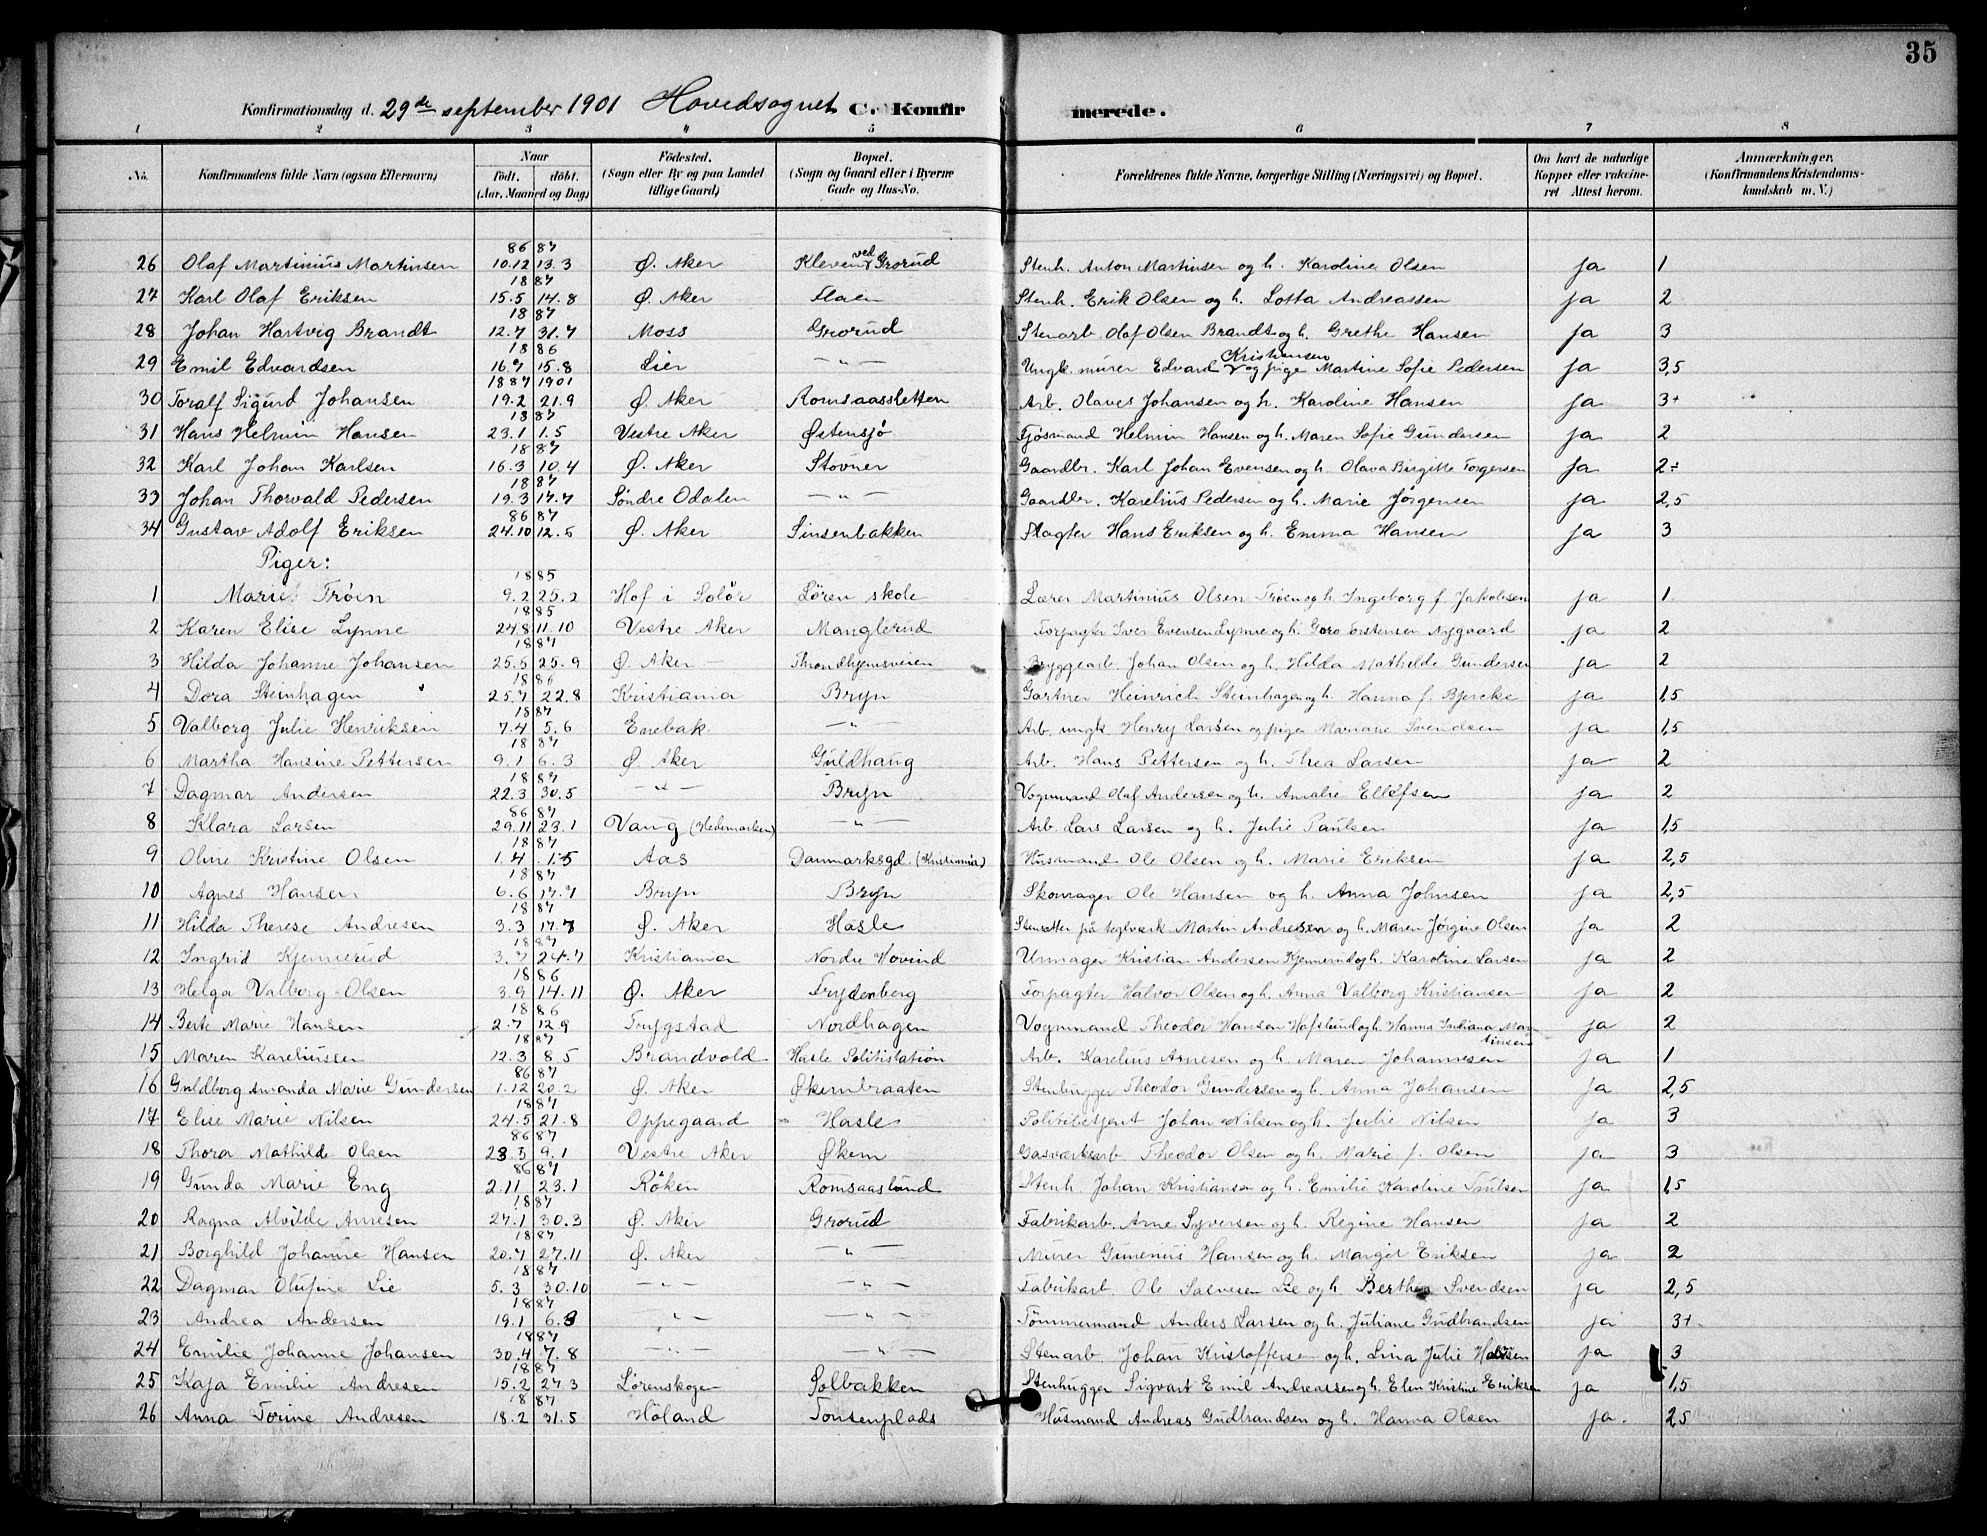 35
Konfirmationsdag d. 29de september 1901 Hovedsognet C. Konfirmerede.
1 2 3 4 5 6 7 8
No. Konfirmandens fulde Navn (ogsaa Efternavn) Naar født. døbt. (Aar, Maaned og Dag) Fødested. (Sogn eller By og paa Landet tillige Gaard) Bopæl. (Sogn og Gaard eller i Byerne Gade og Hus-No. Forældrenes fulde Navne, borgerlige Stilling (Næringsvei) og Bopæl. Om havt de naturlige Kopper eller vaccineret Attest herom. Anmærkninger. (Konfirmandens Kristendomskundskab m. V.)
86 87
26 Olaf Martinius Martinsen 10.12 13.3 Ø. Aker Kleven ved Grorud Stenh. Anton Martinsen og h. Karoline Olsen ja 1
1887
27 Karl Olaf Eriksen 15.5 14.8 Ø. Aker Flaen Stenh. Erik Olsen og h. Lotta Andreassen ja 2
1887
28 Johan Hartvig Brandt 12.7 31.7 Moss Grorud Stenarb. Olaf Olsen Brandt og h. Grethe Hansen ja 3
1886
29 Emil Edvardsen 16.7 15.8 Lier — " — Ungk. murer Edvard Kristiansen og pige Martine Sofie Pedersen ja 3,5
1887 1901
30 Toralf Sigurd Johansen 19.2 21.9 Ø. Aker Romsaassletten Arb. Olaves Johansen og h. Karoline Hansen ja 3+
1887
31 Hans Helmin Hansen 23.1 1.5 Vestre Aker Østensjø Fjøsmand Helmin Hansen og h. Maren Sofie Gundersen ja 2
1887
32 Karl Johan Karlsen 16.3 10.4 Ø. Aker Stovner Gaardbr. Karl Johan Evensen og h. Olava Birgitte Torgersen ja 2÷
1887
33 Johan Thorvald Pedersen 19.3 17.7 Søndre Odalen — " — Gaardbr. Karelius Pedersen og h. Marie Jørgensen ja 2,5
86 87
34 Gustav Adolf Eriksen 24.10 12.5 Ø. Aker Sinsenbakken Slagter Hans Eriksen og h. Emma Hansen ja 3
Piger:
1885
1 Marie Trøen 9.2 25.2 Hof i Solør Løren skole Lærer Martinius Olsen Trøen og h. Ingeborg f. Jakobsen ja 1
1885
2 Karen Elise Lynne 24.8 11.10 Vestre Aker Manglerud Forpagter Iver Evensen Lynne og h. Goro Torstensen Nygaard ja 2
1887
3 Hilda Johanne Johansen 25.5 25.9 Ø. Aker Throndhjemsveien Byggearb. Johan Olsen og h. Hilda Mathilde Gundersen ja 2
1886
4 Dora Steinhagen 25.7 22.8 Kristiania Bryn Gartner Heinrich Steinhagen og h. Hanna f. Bjercke ja 1,5
1887
5 Valborg Julie Henriksen 7.4 5.6 Enebak — " — Arb. ungk. Henry Larsen og pige Mariane Svendsen ja 1,5
1887
6 Martha Hansine Pettersen 9.1 6.3 Ø. Aker Guldhaug Arb. Hans Pettersen og h. Thea Larsen ja 2
1887
7 Dagmar Andersen 22.3 30.5 — " — Bryn Vognmand Olaf Andersen og h. Amalie Ellefsen ja 2
86 87
8 Klara Larsen 29.11 23.1 Vang (Hedemarken) — " — Arb. Lars Larsen og h. Julie Paulsen ja 1,5
1887
9 Oline Kristine Olsen 1.4 1.5 Aas Danmarksgd. (Kristiania) Husmand Ole Olsen og h. Marie Eriksen ja 2,5
1887
10 Agnes Hansen 6.6 17.7 Bryn Bryn Skomager Ole Hansen og h. Anna Johnsen ja 2,5
1887
11 Hilda Therese Andresen 3.3 17.7 Ø. Aker Hasle Stensetter på teglværk Martin Andresen og h. Maren Jørgine Olsen ja 2
1887
12 Ingrid Kjennerud 3.7 24.7 Kristiania Nordre Hovind Urmager Kristian Andersen Kjennerud og h. Karoline Larsen ja 2
1886
13 Helga Valborg Olsen 3.9 14.11 Ø. Aker Frydenberg Forpagter Halvor Olsen og h. Anna Valborg Kristiansen ja 2
1886
14 Berte Marie Hansen 2.7 12.9 Trygstad Nordhagen Vognmand Theodor Hansen Hafslund og h. Hanna Indiana Martinsen ja 2
1887
15 Maren Kareliussen 12.3 8.5 Brandvold Hasle Politistation Arb. Karelius Arnesen og h. Maren Johannesen ja 1
86 87
16 Guldborg Amanda Marie Gundersen 1.12 20.2 Ø. Aker Økernbraaten Stenhugger Theodor Gundersen og h. Anna Johansen ja 2,5
1887
17 Elise Marie Nilsen 24.5 21.8 Oppegaard Hasle Politibetjent Johan Nilsen og h. Julie Nilsen ja 3
86 87
18 Thora Mathilde Olsen 23.3 9.1 Vestre Aker Økern Gasværksarb. Theodor Olsen og h. Marie f. Olsen ja 3
86 87
19 Gunda Marie Eng 2.11 23.1 Røken Romsaaslund Stenh. Johan Kristiansen og h. Emilie Karoline Trulsen ja 1,5
1887
20 Ragna Alvilde Arnesen 27.1 30.3 Ø. Aker Grorud Fabrikarb. Arne Syversen og h. Regine Hansen ja 2
1887
21 Borghild Johanne Hansen 20.7 27.11 Ø. Aker — " — Murer Gunenius Hansen og h. Margit Eriksen ja 2
1887
22 Dagmar Olufine Lie 5.3 30.10 — " — — " — Fabrikarb. Ole Salvesen Lie og h. Berthe Svendsen ja 2,5
1887
23 Andrea Andersen 19.1 6.3 — " — — " — Tømmermand Anders Larsen og h. Juliane Gudbrandsen ja 3+
1887
24 Emilie Johanne Johansen 30.4 7.8 — " — — " — Stenarb. Johan Kristoffersen og h. Lina Julie ja 3
1887
25 Kaja Emilie Andresen 15.2 27.3 Lørenskogen Solbakken Stenhugger Sigvart Emil Andreassen og h. Elen Kristine Eriksen ja 1,5
1887
26 Anna Torine Andresen 18.2 31.5 Høland Tonsenplads Husmand Andreas Gudbrandsen og h. Hanna Olsen ja. 2,5